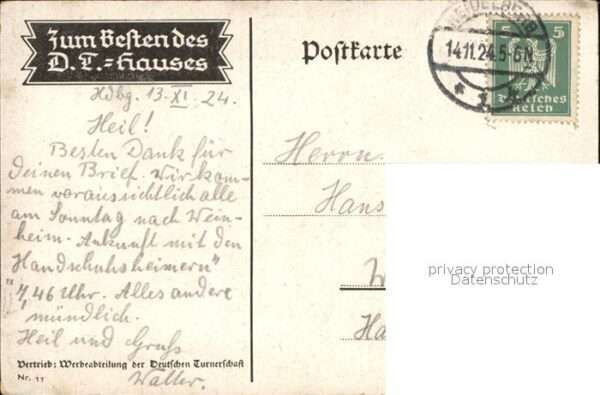 Zum Besten des
D.T.-Hauses
Postkarte
HEIDELBERG
14.11.24.5-6N
* 1
5 5
Deutsches
Reich
Hdbg. 13. XI. 24.
Heil!
Besten Dank für
Deinen Brief. Wir kom-
men voraussichtlich alle
am Sonntag nach Wein-
heim. Ankunft mit den
Handschuhsheimern"
46 Uhr. Alles andere
mündlich.
Heil und Gruß
Walter.
Herrn
Hans
W
Ha
privacy protection
Datenschutz
Vertrieb: Werbeabteilung der Deutschen Turnerschaft
Nr. 11